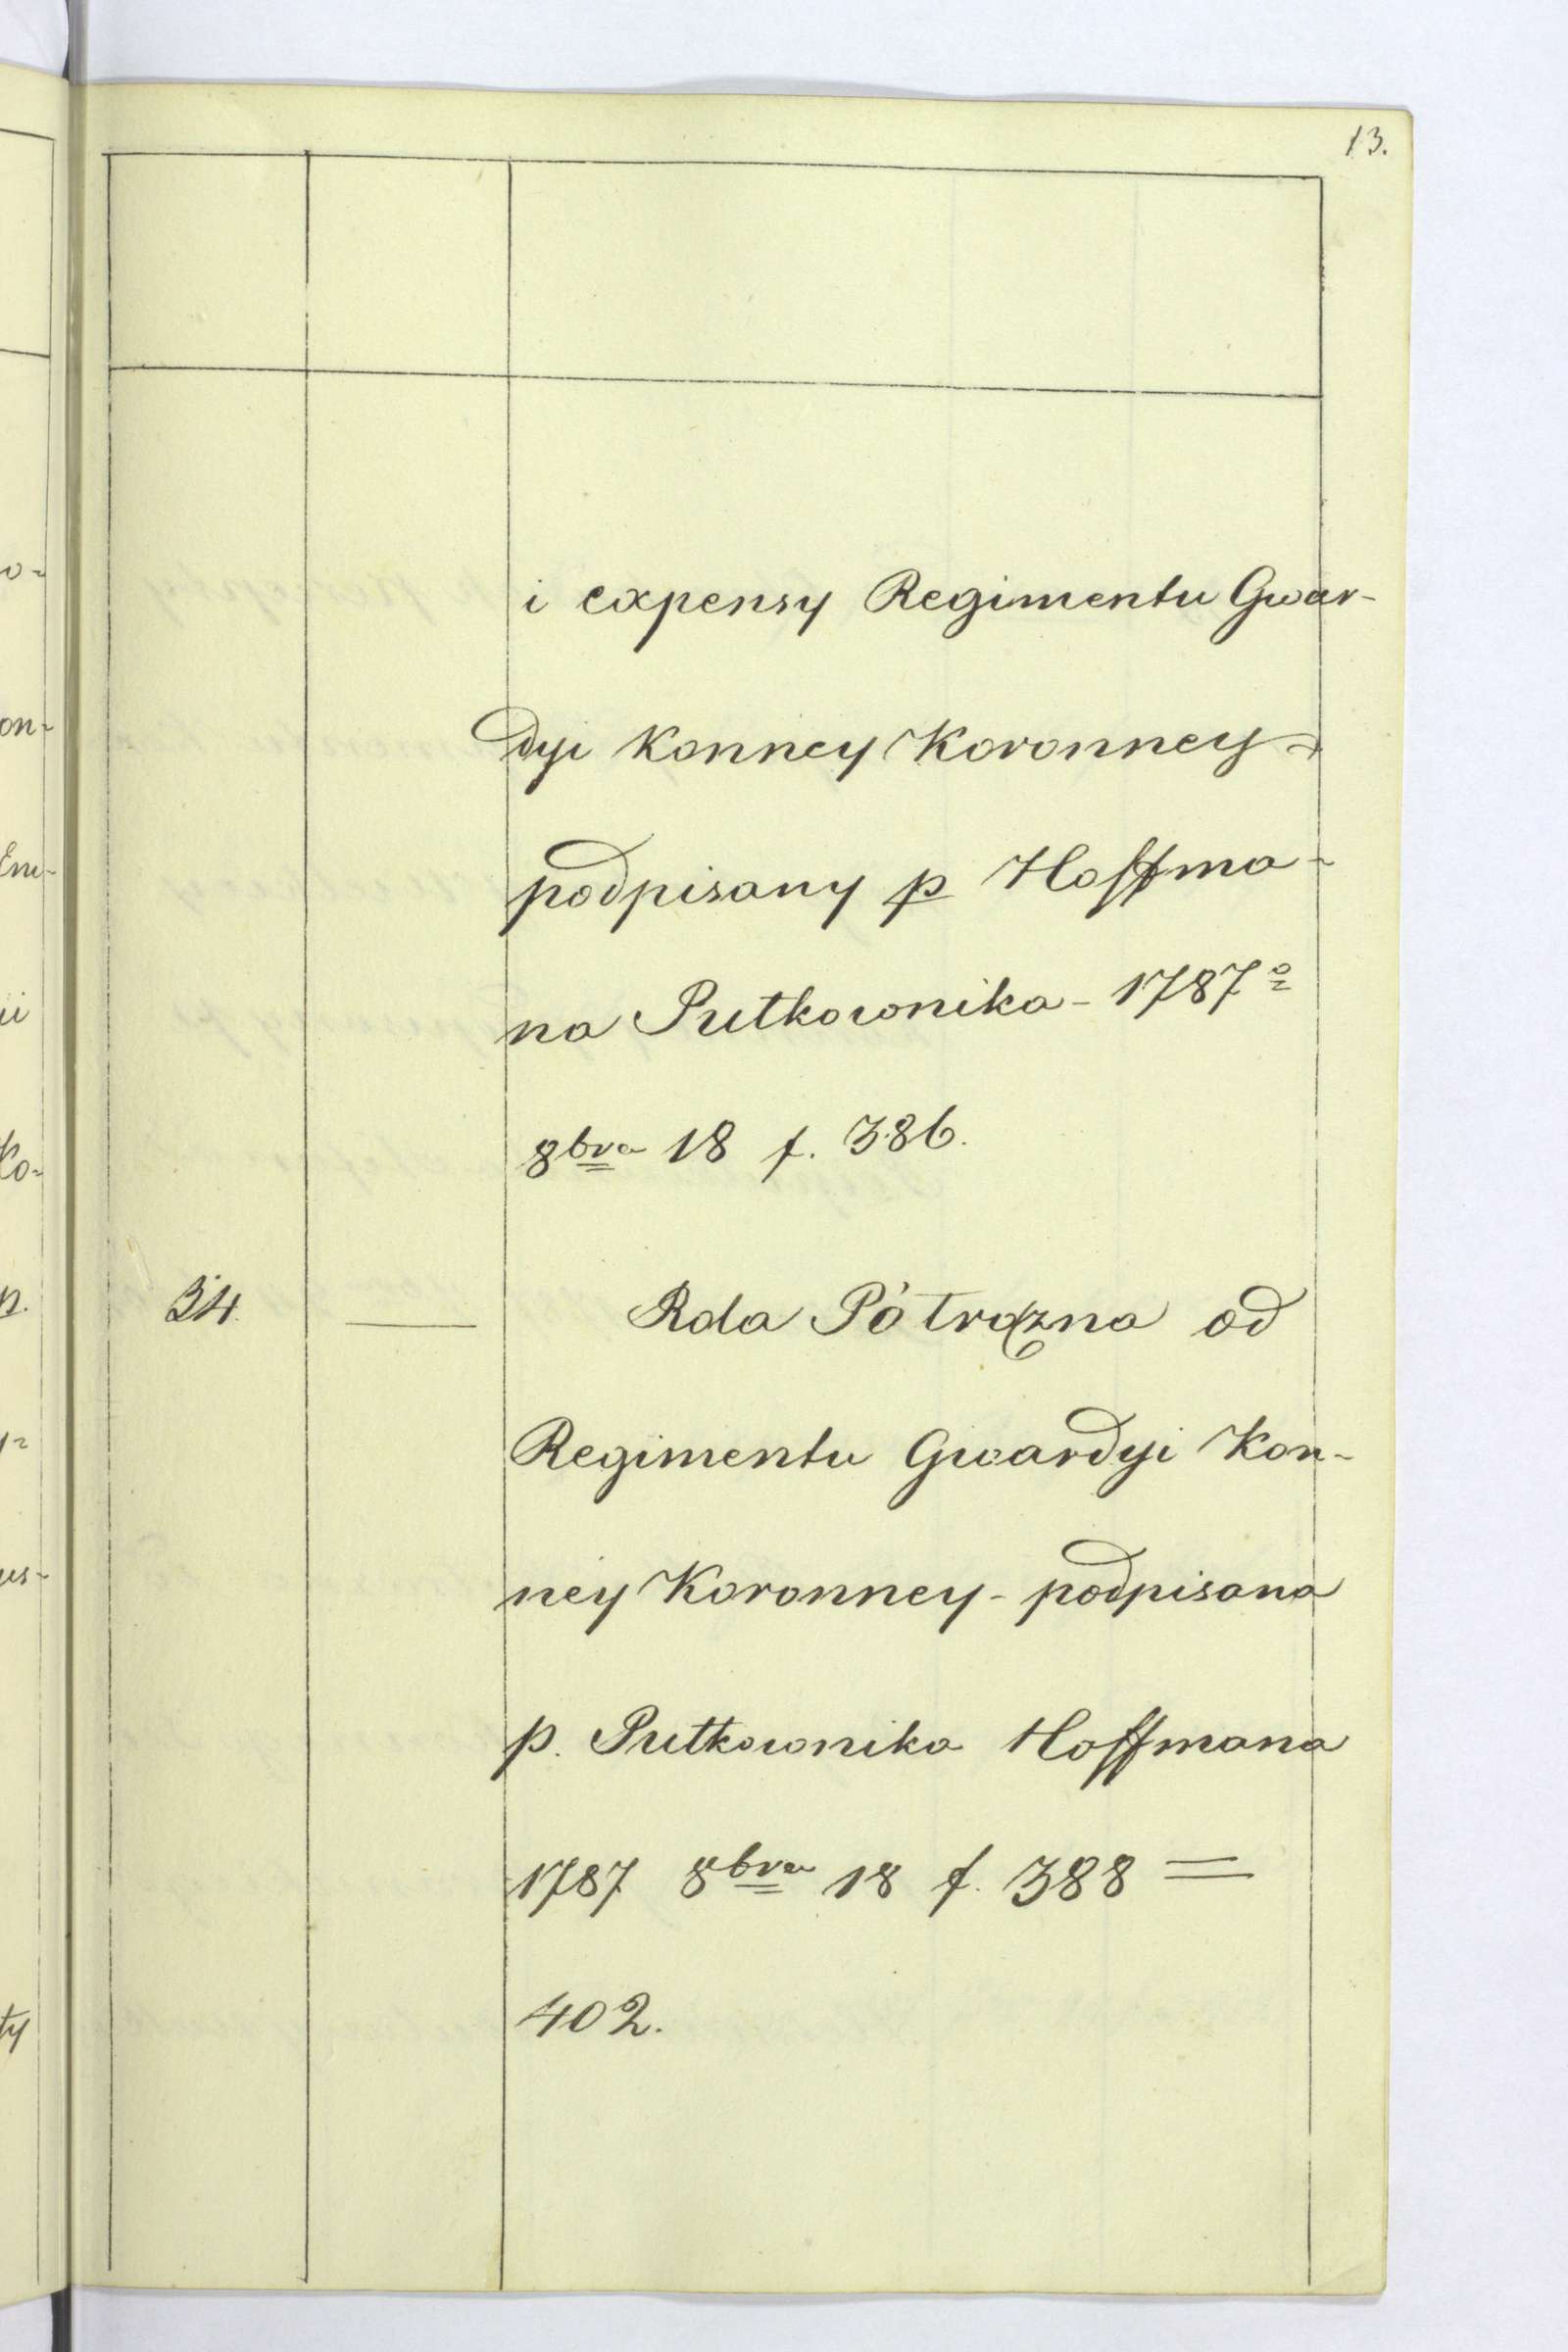 13.
i expensy Regimentu Gwar-
dyi Konney Koronney -
podpisany p Hoffma-
na Putkownika - 1787º
8bra 18 f. 386.
34. — Rola Pótroczna od
Regimentu Gwardyi Kon-
ney Koronney - podpisana
p. Putkownika Hoffmana
1787 8bra 18 f. 388 =
402.